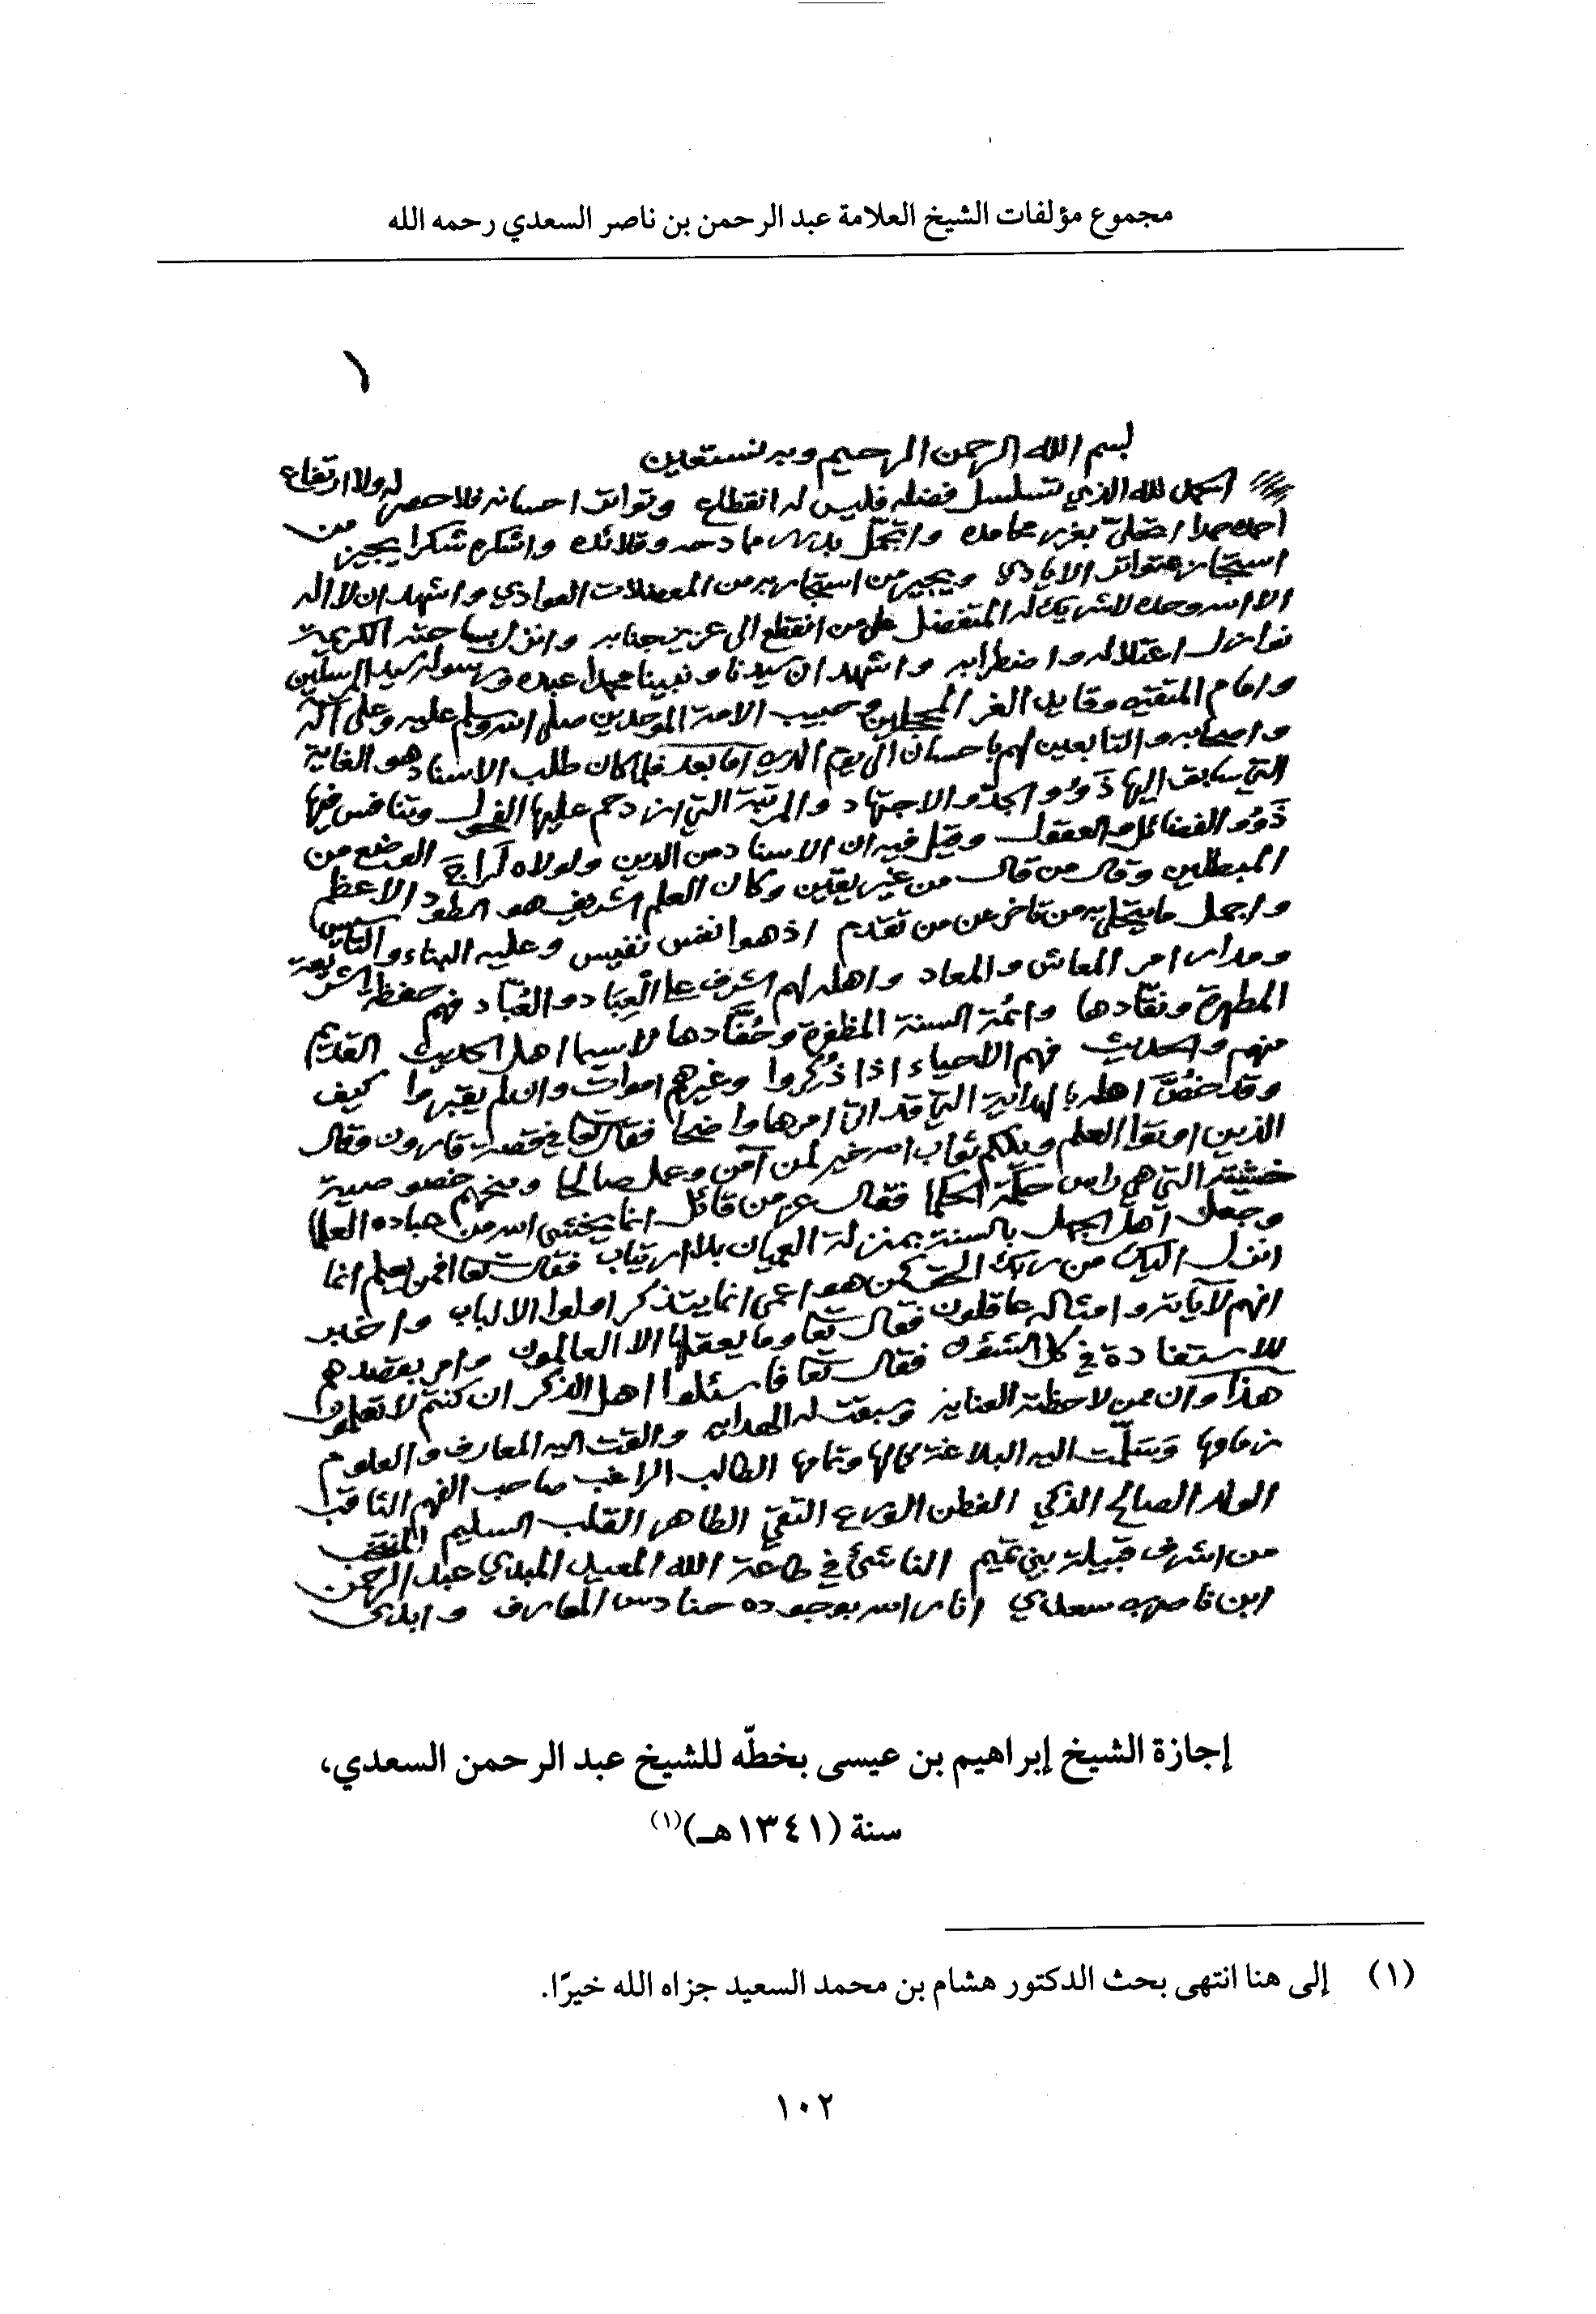 مجموع مؤلفات الشيخ العلامة عبد الرحمن بن ناصر السعدي رحمه الله
١
بسم الله الرحمن الرحيم وبه نستعين
الحمد لله الذي تسلسل فضله فليس له انقطاع وتواتر احسانه فلا حصر له ولا ارتفاع
احمده حمدا اتحلى بغرر محامده واتجمل بدرر مادحه وقلائده واشكره شكرا يجيز من
استجاز متواتر الايادي ويجير من استجار به من المعضلات العوادي واشهد ان لا اله
الا الله وحده لا شريك له المتفضل على من انقطع الى عزيز جنابه وانزل بساحته الكريمة
نوازل اعتلاله واضطرابه واشهد ان سيدنا ونبينا محمدا عبده ورسوله سيد المرسلين
وامام المتقين وقايد الغر المحجلين وحبيب الامة الموحدين صلى الله وسلم عليه وعلى آله
واصحابه والتابعين لهم باحسان الى يوم الدين اما بعد فلما كان طلب الاسناد هو الغاية
التي سابق اليها ذَوُو الجدّ والاجتهاد والمرتبة التي ازدحم عليها الفحول وتنافس فيها
ذَوُو الفضائل والعقول وقيل فيه ان الاسناد من الدين ولولاه لراج الوضع من
المبطلين وقال من قال من غير يقين وكان العلم الشريف هو الطود الاعظم
واجمل ما يتحلى به من تاخر عن من تقدم اذ هو انفس نفيس وعليه البناء والتاسيس
ومدار امر المعاش والمعاد واهله لهم الشرف على العِبَاد والعُبّاد فهم حفظة الشريعة
المطهرة ونقّادها وائمة السنة المظفرة وحُفّادها لا سيما اهل الحديث القديم
منهم والحديث فهم الاحياء اذا ذُكروا وغيرهم اموات وان لم يقبروا كيف
وقد خصّ اهله بالهداية التي قد اتى امرها واضحا فقال تعالى في قصة قارون وقال
الذين اوتوا العلم ويلكم ثواب الله خير لمن آمن وعمل صالحا ومنحهم خصوصية
خشيته التي هي راس حكمة الحكما فقال عز من قائل انما يخشى الله من عباده العلما
وجعل اهل الجهل بالسنة بمنزلة العميان بلا ارتياب فقال تعالى افمن يعلم انما
انزل اليك من ربك الحق كمن هو اعمى انما يتذكر اولوا الالباب واخبر
انهم لآياته وامثاله عاقلون فقال تعالى وما يعقلها الا العالمون وامر بقصدهم
للاستفادة في كل الشؤن فقال تعالى فاسئلوا اهل الذكر ان كنتم لا تعلمون
هذا وان ممن لاحظته العناية وسبقت له الهدايه والقت اليه المعارف والعلوم
زمامها وسَلّمت اليه البلاغة كمالها وتمامها الطالب الراغب صاحب الفهم الثاقب
الولد الصالح الذكي الفطن الورع التقي الطاهر القلب السليم المنتخب
من اشرف قبيلة بني تميم الناشئ في طاعة الله المعيد المبدي عبد الرحمن
ابن ناصر بن سعدي انار الله بوجوده حنادس المعارف وابدى
إجازة الشيخ إبراهيم بن عيسى بخطّه للشيخ عبد الرحمن السعدي،
سنة (١٣٤١هـ)(١)
(١) إلى هنا انتهى بحث الدكتور هشام بن محمد السعيد جزاه الله خيرًا.
١٠٢